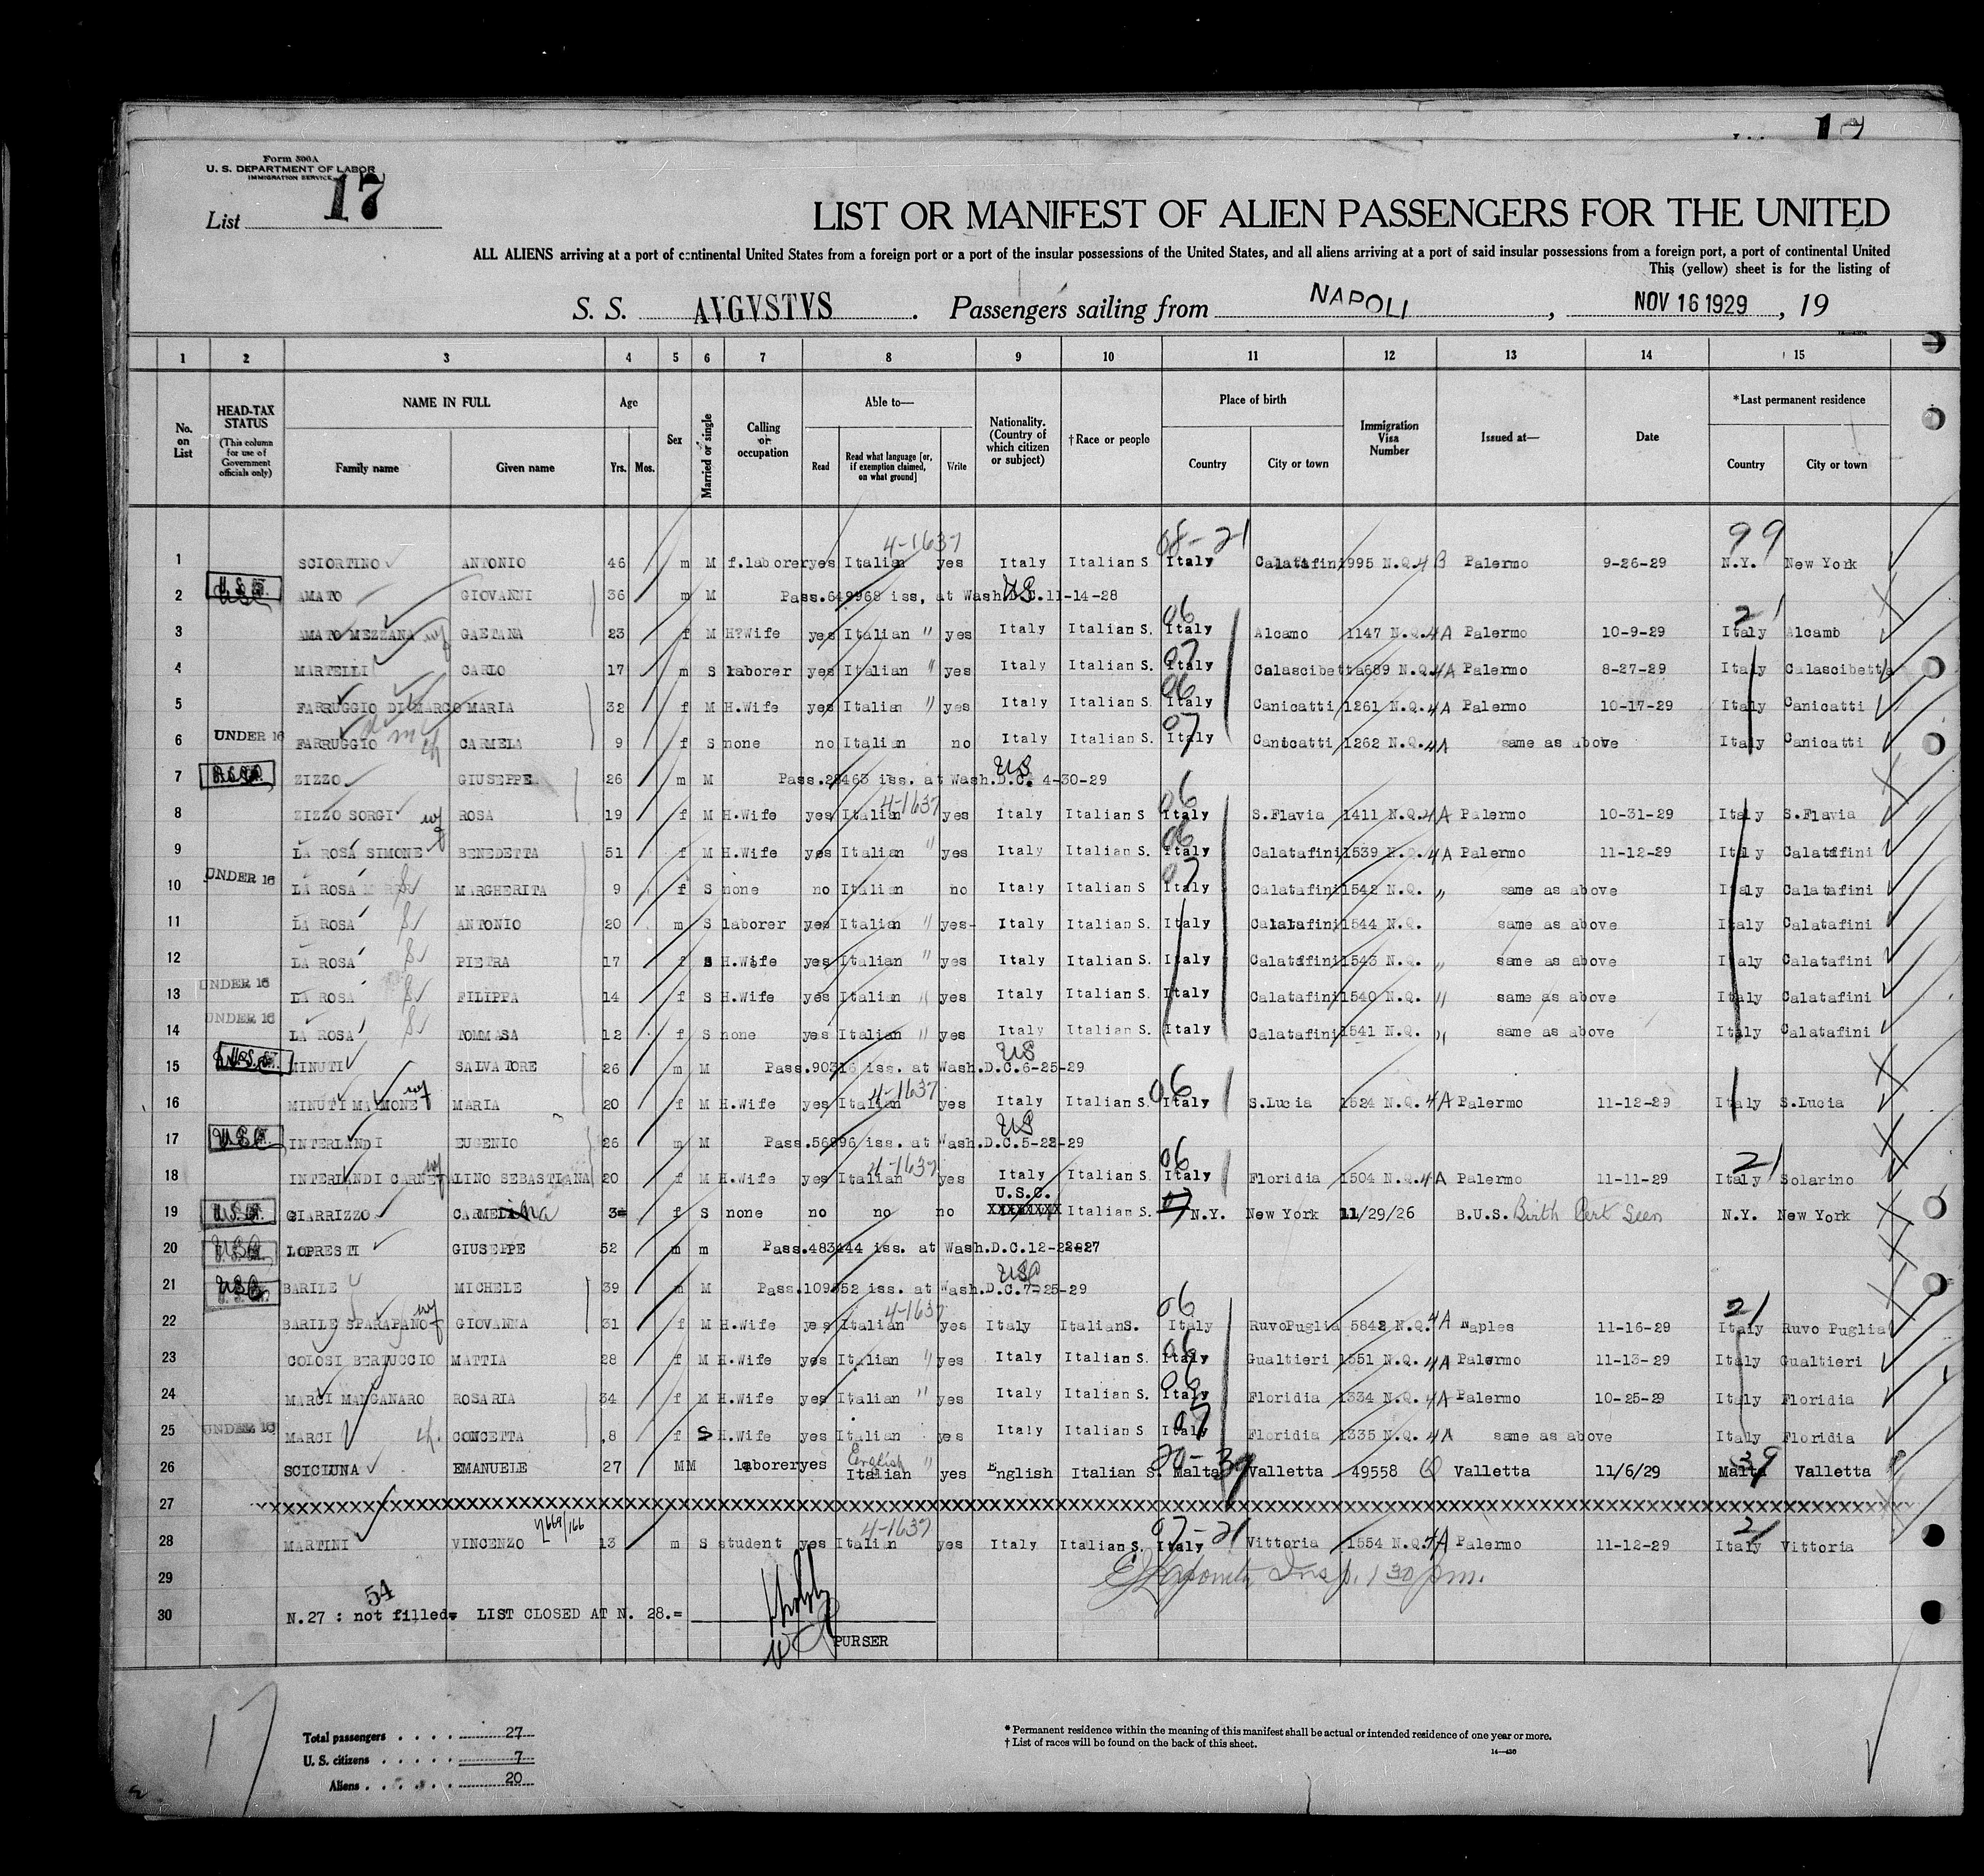 Form 500A
U. S. DEPARTMENT OF LABOR
IMMIGRATION SERVICE
List 17
LIST OR MANIFEST OF ALIEN PASSENGERS FOR THE UNITED
ALL ALIENS arriving at a port of continental United States from a foreign port or a port of the insular possessions of the United States, and all aliens arriving at a port of said insular possessions from a foreign port, a port of continental United
This (yellow) sheet is for the listing of
S. S. AVGVSTVS. Passengers sailing from NAPOLI, NOV 16 1929, 19
1 2 3 4 5 6 7 8 9 10 11 12 13 14 15
No. on List
HEAD-TAX STATUS (This column for use of Government officials only)
NAME IN FULL Family name Given name
Age Yrs. Mos.
Sex
Married or single
Calling or occupation
Able to— Read Read what language [or, if exemption claimed, on what ground] Write
Nationality. (Country of which citizen or subject)
†Race or people
Place of birth Country City or town
Immigration Visa Number
Issued at—
Date
*Last permanent residence Country City or town
4-1637 08-21 99
1 SCIORTINO ANTONIO 46 m M f.laborer yes Italian yes Italy Italian S Italy Calatafini 995 N.Q. 4 B Palermo 9-26-29 N.Y. New York
2 AMATO GIOVANNI 36 m M Pass.649968 iss, at Wash.D.C.11-14-28 US
3 AMATO MEZZANA wf GAETANA 23 f M H?Wife yes Italian " yes Italy Italian S. 06 Italy Alcamo 1147 N.Q. 4A Palermo 10-9-29 21 Italy Alcamb
4 MARTELLI CARLO 17 m S laborer yes Italian " yes Italy Italian S. 07 Italy Calascibetta 689 N.Q. 4A Palermo 8-27-29 Italy Calascibetta
5 FARRUGGIO DI MARCO MARIA 32 f M H.Wife yes Italian " yes Italy Italian S. 06 Italy Canicatti 1261 N.Q. 4A Palermo 10-17-29 Italy Canicatti
6 UNDER 16 FARRUGGIO ch CARMELA 9 f S none no Italian no Italy Italian S. 07 Italy Canicatti 1262 N.Q. 4A same as above Italy Canicatti
7 ZIZZO GIUSEPPE 26 m M Pass.28463 iss. at Wash.D.C. 4-30-29 US
8 ZIZZO SORGI wf ROSA 19 f M H.Wife yes Italian 4-1637 yes Italy Italian S 06 Italy S.Flavia 1411 N.Q. 4A Palermo 10-31-29 Italy S.Flavia
9 LA ROSA SIMONE BENEDETTA 51 f M H.Wife yes Italian " yes Italy Italian S. 06 Italy Calatafini 1539 N.Q. 4A Palermo 11-12-29 Italy Calatafini
10 UNDER 16 LA ROSA MARGHERITA 9 f S none no Italian no Italy Italian S 07 Italy Calatafini 1542 N.Q. " same as above Italy Calatafini
11 LA ROSA ANTONIO 20 m S laborer yes Italian " yes- Italy Italian S. Italy Calatafini 1544 N.Q. same as above Italy Calatafini
12 LA ROSA PIETRA 17 f S H.Wife yes Italian " yes Italy Italian S. Italy Calatafini 1543 N.Q. " same as above Italy Calatafini
13 UNDER 16 LA ROSA FILIPPA 14 f S H.Wife yes Italian " yes Italy Italian S. Italy Calatafini 1540 N.Q. " same as above Italy Calatafini
14 UNDER 16 LA ROSA TOMMASA 12 f S none yes Italian " yes Italy Italian S. Italy Calatafini 1541 N.Q. " same as above Italy Calatafini
15 MINUTI SALVATORE 26 m M Pass.90316 iss. at Wash.D.C.6-25-29 US
16 MINUTI MAIMONE wf MARIA 20 f M H.Wife yes Italian 4-1637 yes Italy Italian S. 06 Italy S.Lucia 1524 N.Q. 4A Palermo 11-12-29 Italy S.Lucia
17 INTERLANDI EUGENIO 26 m M Pass.56896 iss. at Wash.D.C.5-28-29 US
18 INTERLANDI CARNEVALINO wf SEBASTIANA 20 f M H.Wife yes Italian 4-1637 yes Italy Italian S. 06 Italy Floridia 1504 N.Q. 4A Palermo 11-11-29 21 Italy Solarino
19 GIARRIZZO CARMELina 3 f S none no no no U.S.C. XXXXXXXX Italian S. N.Y. New York 11/29/26 B.U.S. Birth Cert Seen N.Y. New York
20 LOPRESTI GIUSEPPE 52 m m Pass.483444 iss. at Wash.D.C.12-2827
21 BARILE MICHELE 39 m M Pass.109852 iss. at Wash.D.C.7-25-29
22 BARILE SPARAPANO wf GIOVANNA 31 f M H.Wife yes Italian 4-1637 yes Italy ItalianS. 06 Italy RuvoPuglia 5842 N.Q. 4A Naples 11-16-29 21 Italy Ruvo Puglia
23 COLOSI BERTUCCIO MATTIA 28 f M H.Wife yes Italian " yes Italy Italian S. 06 Italy Gualtieri 1551 N.Q. 4A Palermo 11-13-29 Italy Gualtieri
24 MARCI MANGANARO ROSARIA 34 f M H.Wife yes Italian " yes Italy Italian S. 06 Italy Floridia 1334 N.Q. 4A Palermo 10-25-29 Italy Floridia
25 UNDER 16 MARCI ch. CONCETTA 8 f S H.Wife yes Italian yes Italy Italian S 07 Italy Floridia 1335 N.Q. 4A same as above Italy Floridia
26 SCICLUNA EMANUELE 27 MM laborer yes English Italian " yes English Italian S. 20-39 Malta Valletta 49558 Valletta 11/6/29 39 Malta Valletta
27
28 MARTINI VINCENZO 13 m S student yes Italian 4-1637 yes Italy Italian S. 07-21 Italy Vittoria 1554 N.Q. 4A Palermo 11-12-29 21 Italy Vittoria
29 Insp. 1 30 pm.
54
30 N.27 : not filled. LIST CLOSED AT N. 28.=
PURSER
17
Total passengers . . . . 27
U. S. citizens . . . . . 7
Aliens . . . . . . 20
* Permanent residence within the meaning of this manifest shall be actual or intended residence of one year or more.
† List of races will be found on the back of this sheet.
14—430